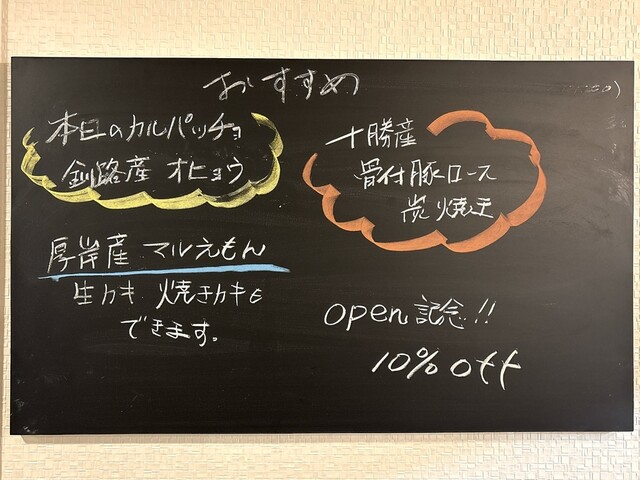 おすすめ
本日のカルパッチョ
釧路産 オヒョウ
十勝産
骨付豚ロース
炭焼き
厚岸産 マルえもん
生カキ 焼きカキも
できます。
open記念!!
10% off